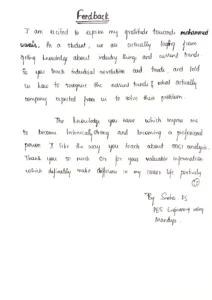 Feedback
I am excited to express my gratitude towards mohammed
As a student, we are actually lagging from
getting knowledge about industry things and current trends
So you teach industrial revolution and trends and told
us how to recognize the current trends & what actually
company expected from us to solve their problem.
The knowledge you have which inspire me
to become technically strong and becoming a professional
person. I like the way you teach about analysis.
Thank you so much sir for your valuable information
which definitely make difference in my career life positively
By Sneha
PES Engineering college
Mandya